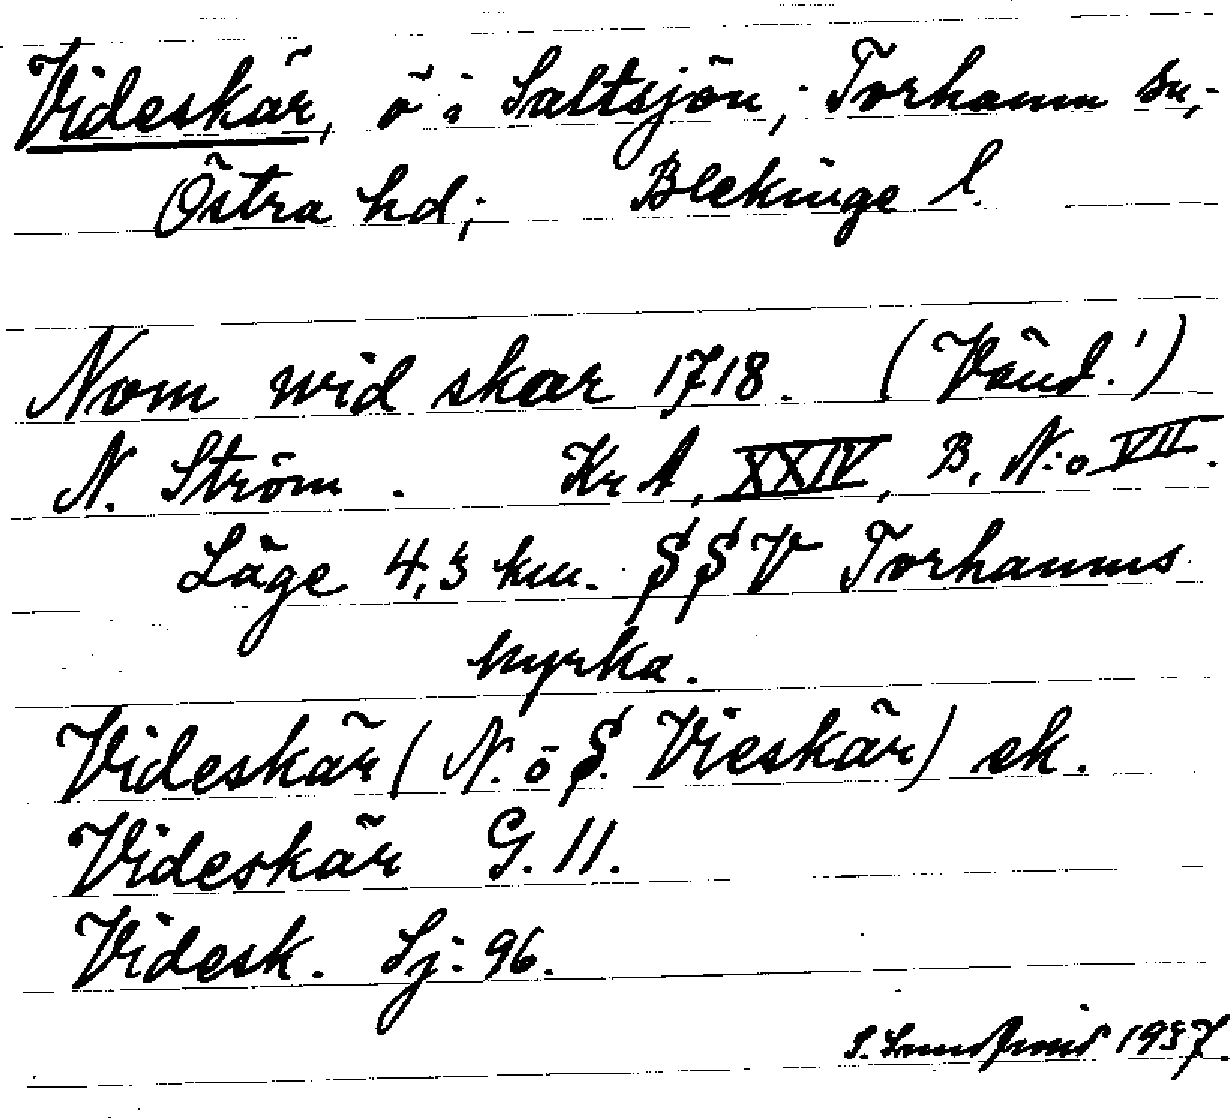 Videskär, ö i Saltsjön; Torhamn sn,
Östra hd; Blekinge l.
Nom wid skar 1718. (Vänd!)
N. Ström. Kr A, XXIV, B. N:o VII.
Läge 4,3 km. SSV Torhamns
kyrka.
Videskär (N. o S. Vieskär) ek.
Videskär G. 11.
Videsk. Sj: 96.
1937.